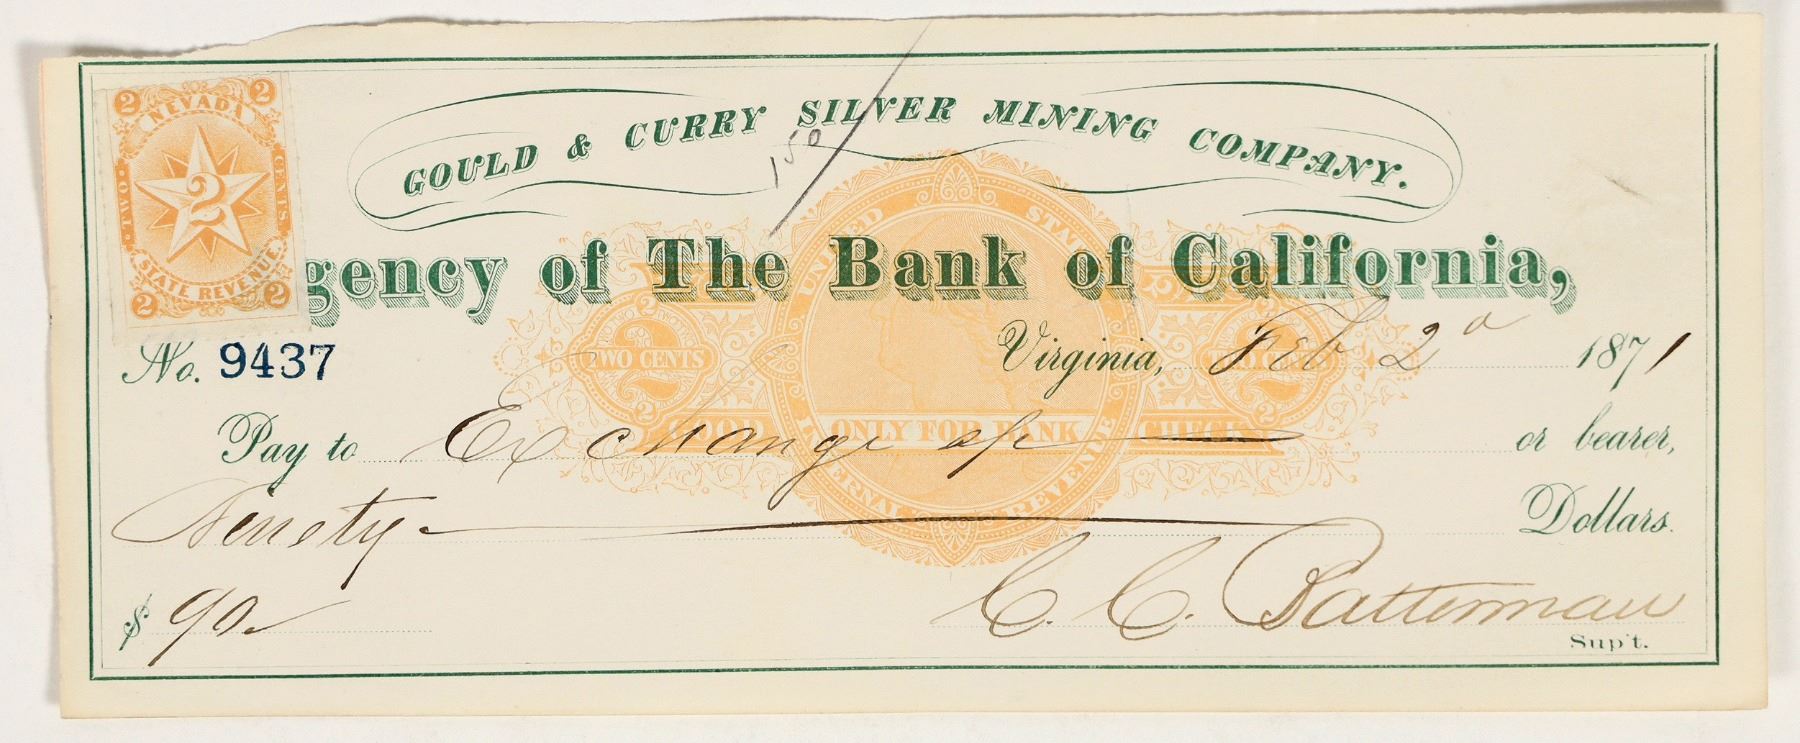 GOULD & CURRY SILVER MINING COMPANY.
150
2 NEVADA 2
TWO CENTS
2
STATE REVENUE
2 2
gency of The Bank of California,
UNITED STA
No. 9437
Virginia, Feb 2d 1871
TWO CENTS 2
Pay to Exchange or bearer,
GOOD ONLY FOR BANK CHECK
INTERNAL REVENUE
Ninety Dollars.
$ 90
C. C. Batterman
Sup't.